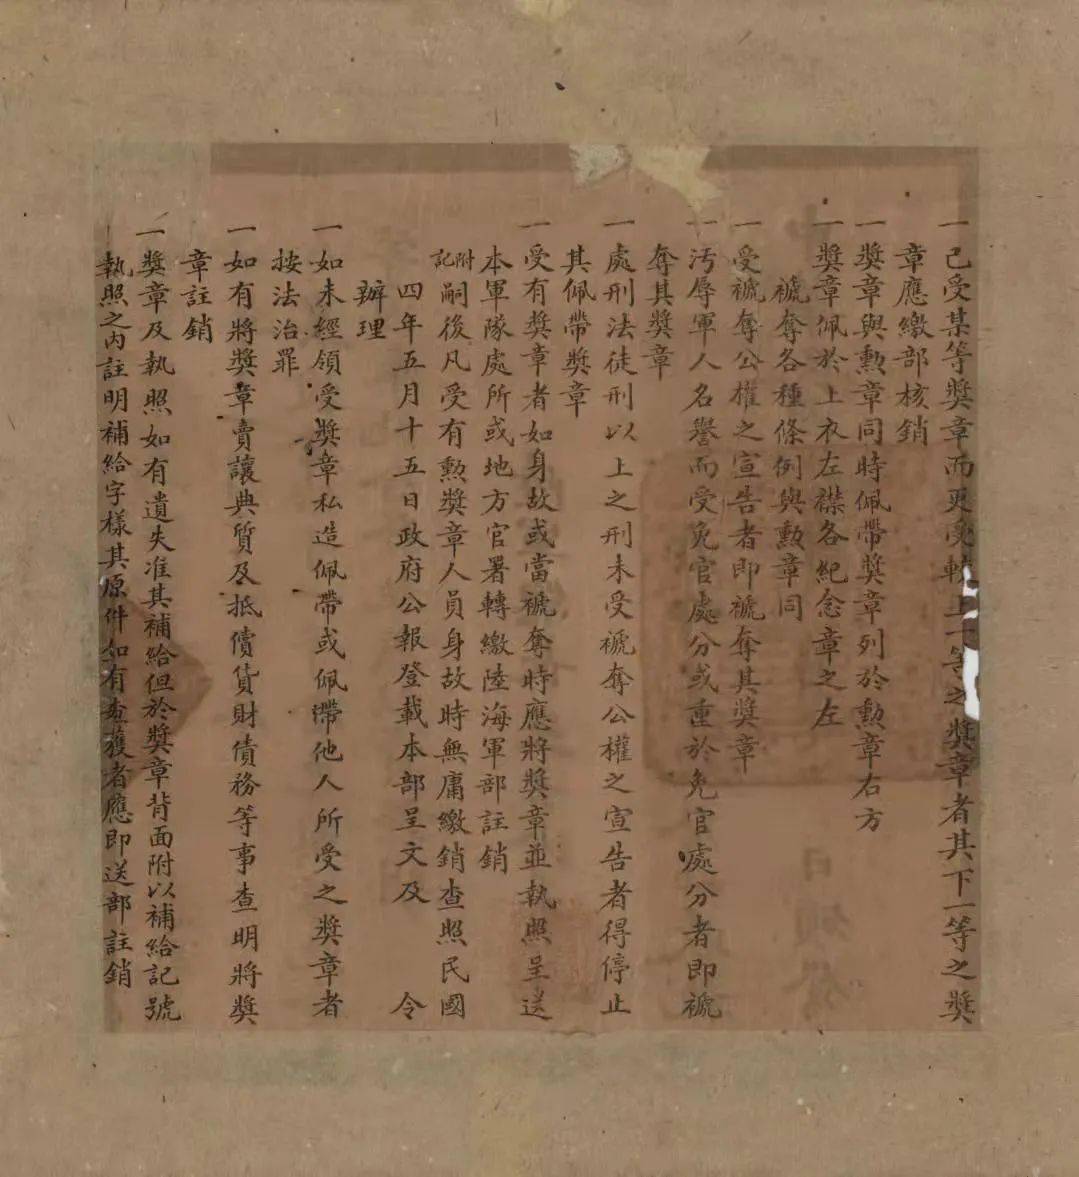 一已受某等獎章而更受轉上一等之獎章者其下一等之獎
章應繳部核銷
一獎章與勳章同時佩帶獎章列於勳章右方
一獎章佩於上衣左襟各紀念章之左
褫奪各種條例與勳章同
一受褫奪公權之宣告者即褫奪其獎章
一污辱軍人名譽而受免官處分或重於免官處分者即褫
奪其獎章
一處刑法徒刑以上之刑未受褫奪公權之宣告者得停止
其佩帶獎章
一受有獎章者如身故或當褫奪時應將獎章並執照呈送
本軍隊處所或地方官署轉繳陸海軍部註銷
附記嗣後凡受有勳獎章人員身故時無庸繳銷查照民國
四年五月十五日政府公報登載本部呈文及 令
辦理
一如未經領受獎章私造佩帶或佩帶他人所受之獎章者
按法治罪
一如有將獎章賣讓典質及抵償貨財債務等事查明將獎
章註銷
一獎章及執照如有遺失准其補給但於獎章背面附以補給記號
執照之內註明補給字樣其原件如有查獲者應即送部註銷